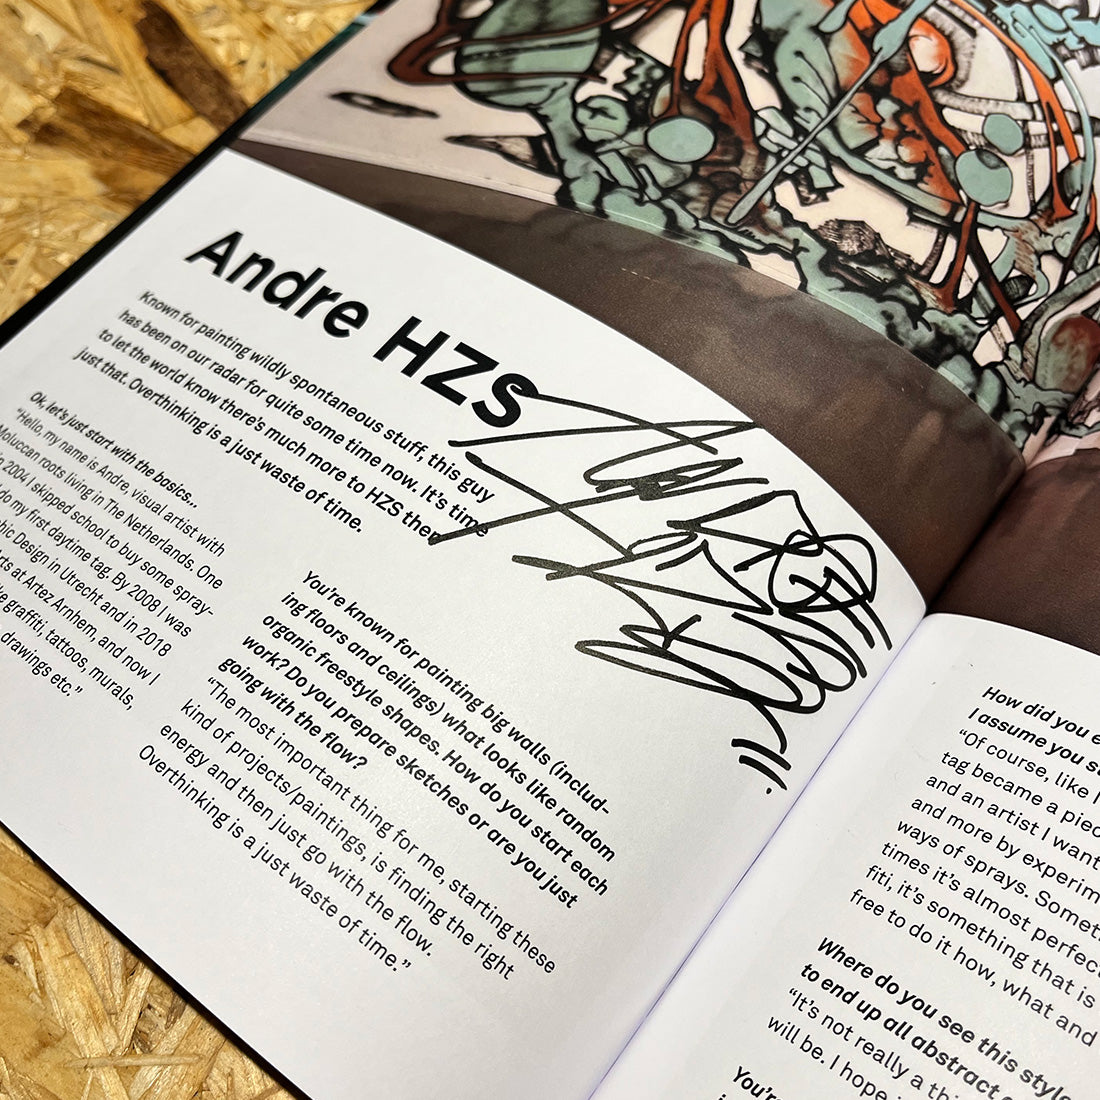 Andre HZS
Known for painting wildly spontaneous stuff, this guy
has been on our radar for quite some time now. It's time
to let the world know there's much more to HZS then
just that. Overthinking is a just waste of time.
Ok, let's just start with the basics...
"Hello, my name is Andre, visual artist with
Moluccan roots living in The Netherlands. One
in 2004 I skipped school to buy some spray-
do my first daytime tag. By 2008 I was
Design in Utrecht and in 2018
Arts at Artez Arnhem, and now I
graffiti, tattoos, murals,
drawings etc."
You're known for painting big walls (includ-
ing floors and ceilings) what looks like random
organic freestyle shapes. How do you start each
work? Do you prepare sketches or are you just
going with the flow?
"The most important thing for me, starting these
kind of projects/paintings, is finding the right
energy and then just go with the flow.
Overthinking is a just waste of time."
How did you
I assume you
"Of course, like
tag became a
and an artist I
and more by
ways of sprays.
times it's almost
fiti, it's something that is
free to do it how, what and
Where do you see this
to end up all abstract
"It's not really a
will be. I hope